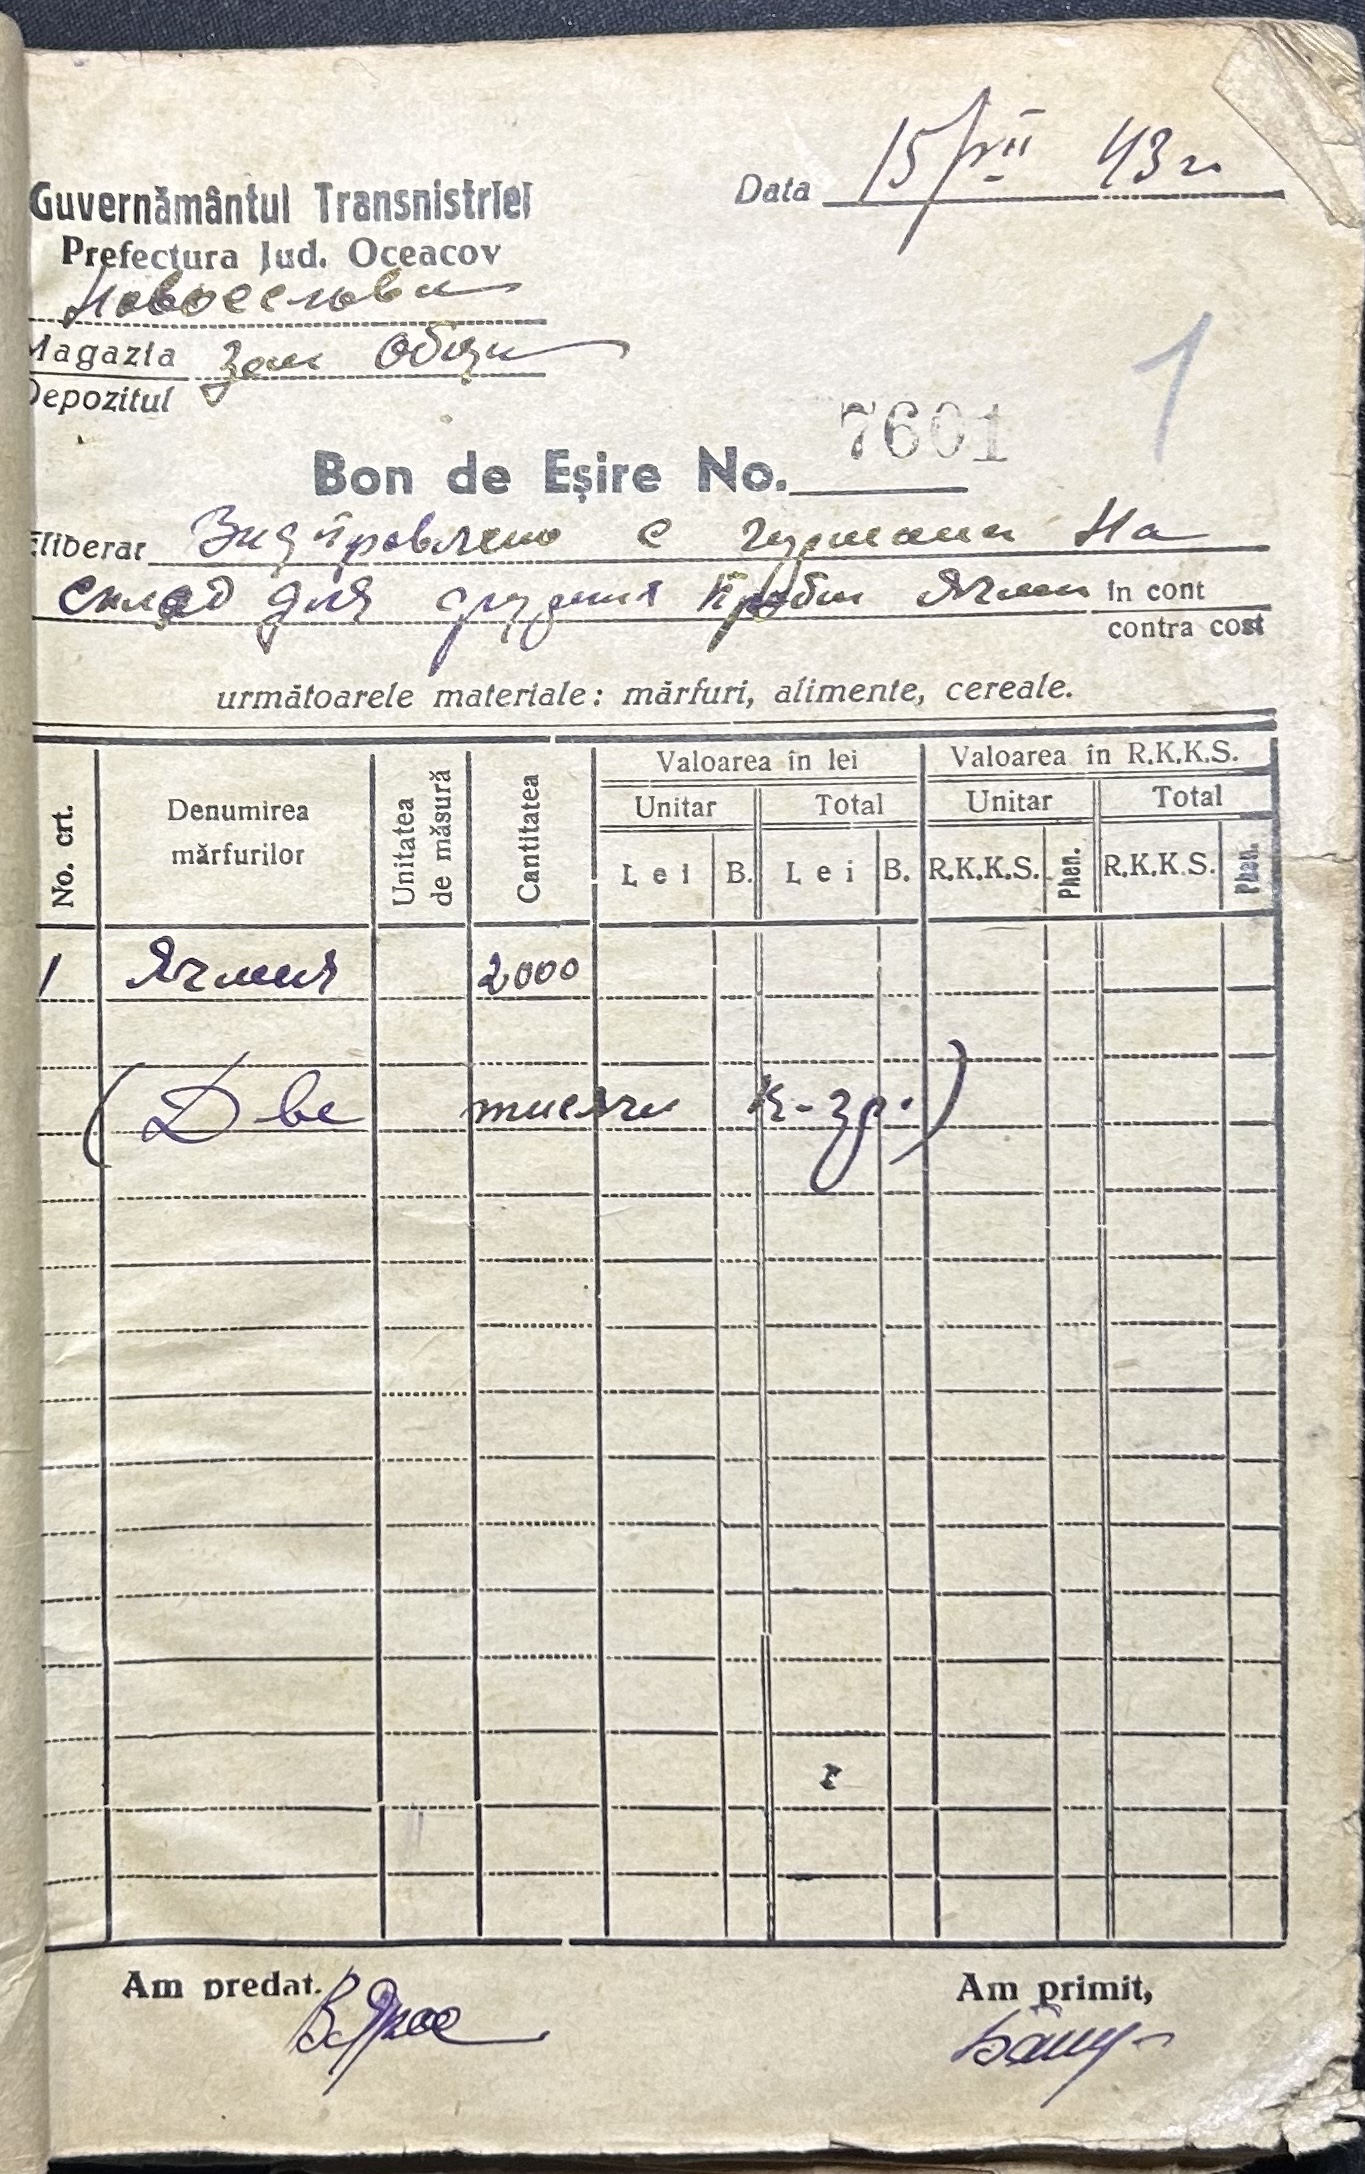 Data 15/VII 43 г
Guvernământul Transnistriei
Prefectura Jud. Oceacov
Magazia зем Общи
Depozitul
1
7601
Bon de Eşire No.
Eliberat с гурмани На
склад для ячми in cont
contra cost
următoarele materiale: mărfuri, alimente, cereale.
No. crt. Denumirea mărfurilor Unitatea de măsură Cantitatea Valoarea în lei Valoarea în R.K.K.S.
Unitar Total Unitar Total
Lei B. Lei B. R.K.K.S. Phen. R.K.K.S. Phen.
1 Ячменя 2000
(Две тисячи к-гр.)
Am predat. Am primit,